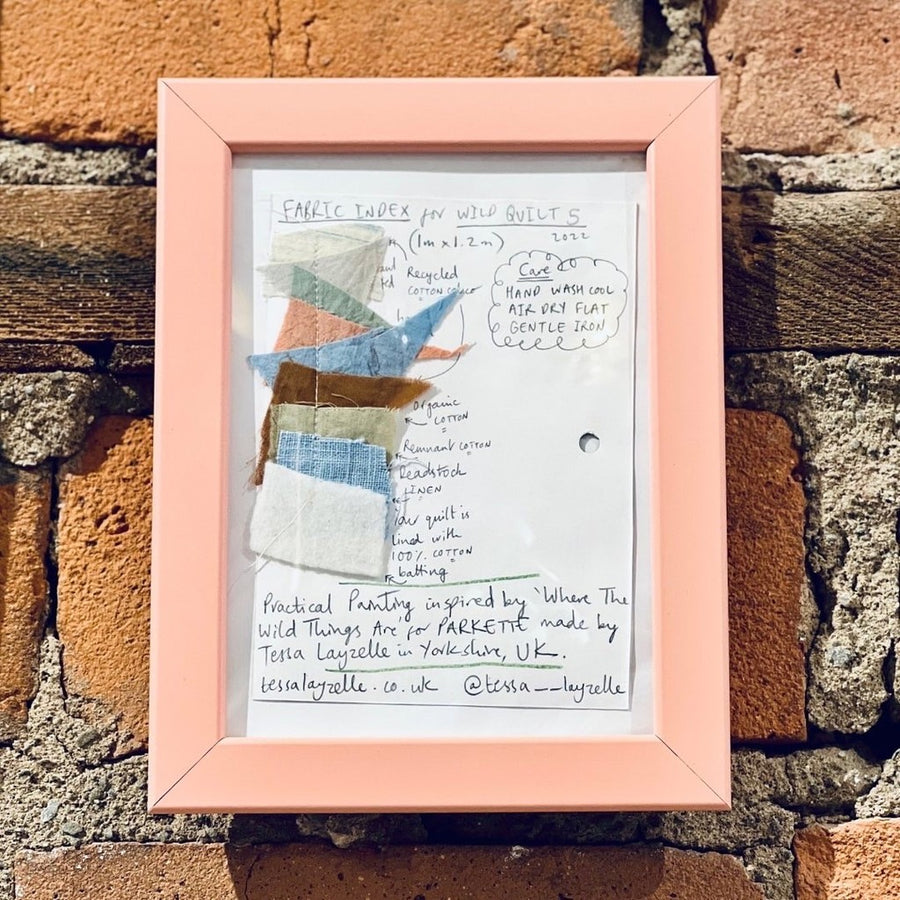 FABRIC INDEX for WILD QUILT 5
2022
(1m x 1.2m)
Recycled
COTTON
Care
HAND WASH COOL
AIR DRY FLAT
GENTLE IRON
Organic
COTTON
Remnant COTTON
Deadstock
LINEN
quilt is
lined with
100% COTTON
batting
Practical Painting inspired by 'Where The
Wild Things Are' for PARKETTE made by
Tessa Layzelle in Yorkshire, UK.
tessalayzelle.co.uk @tessa__layzelle